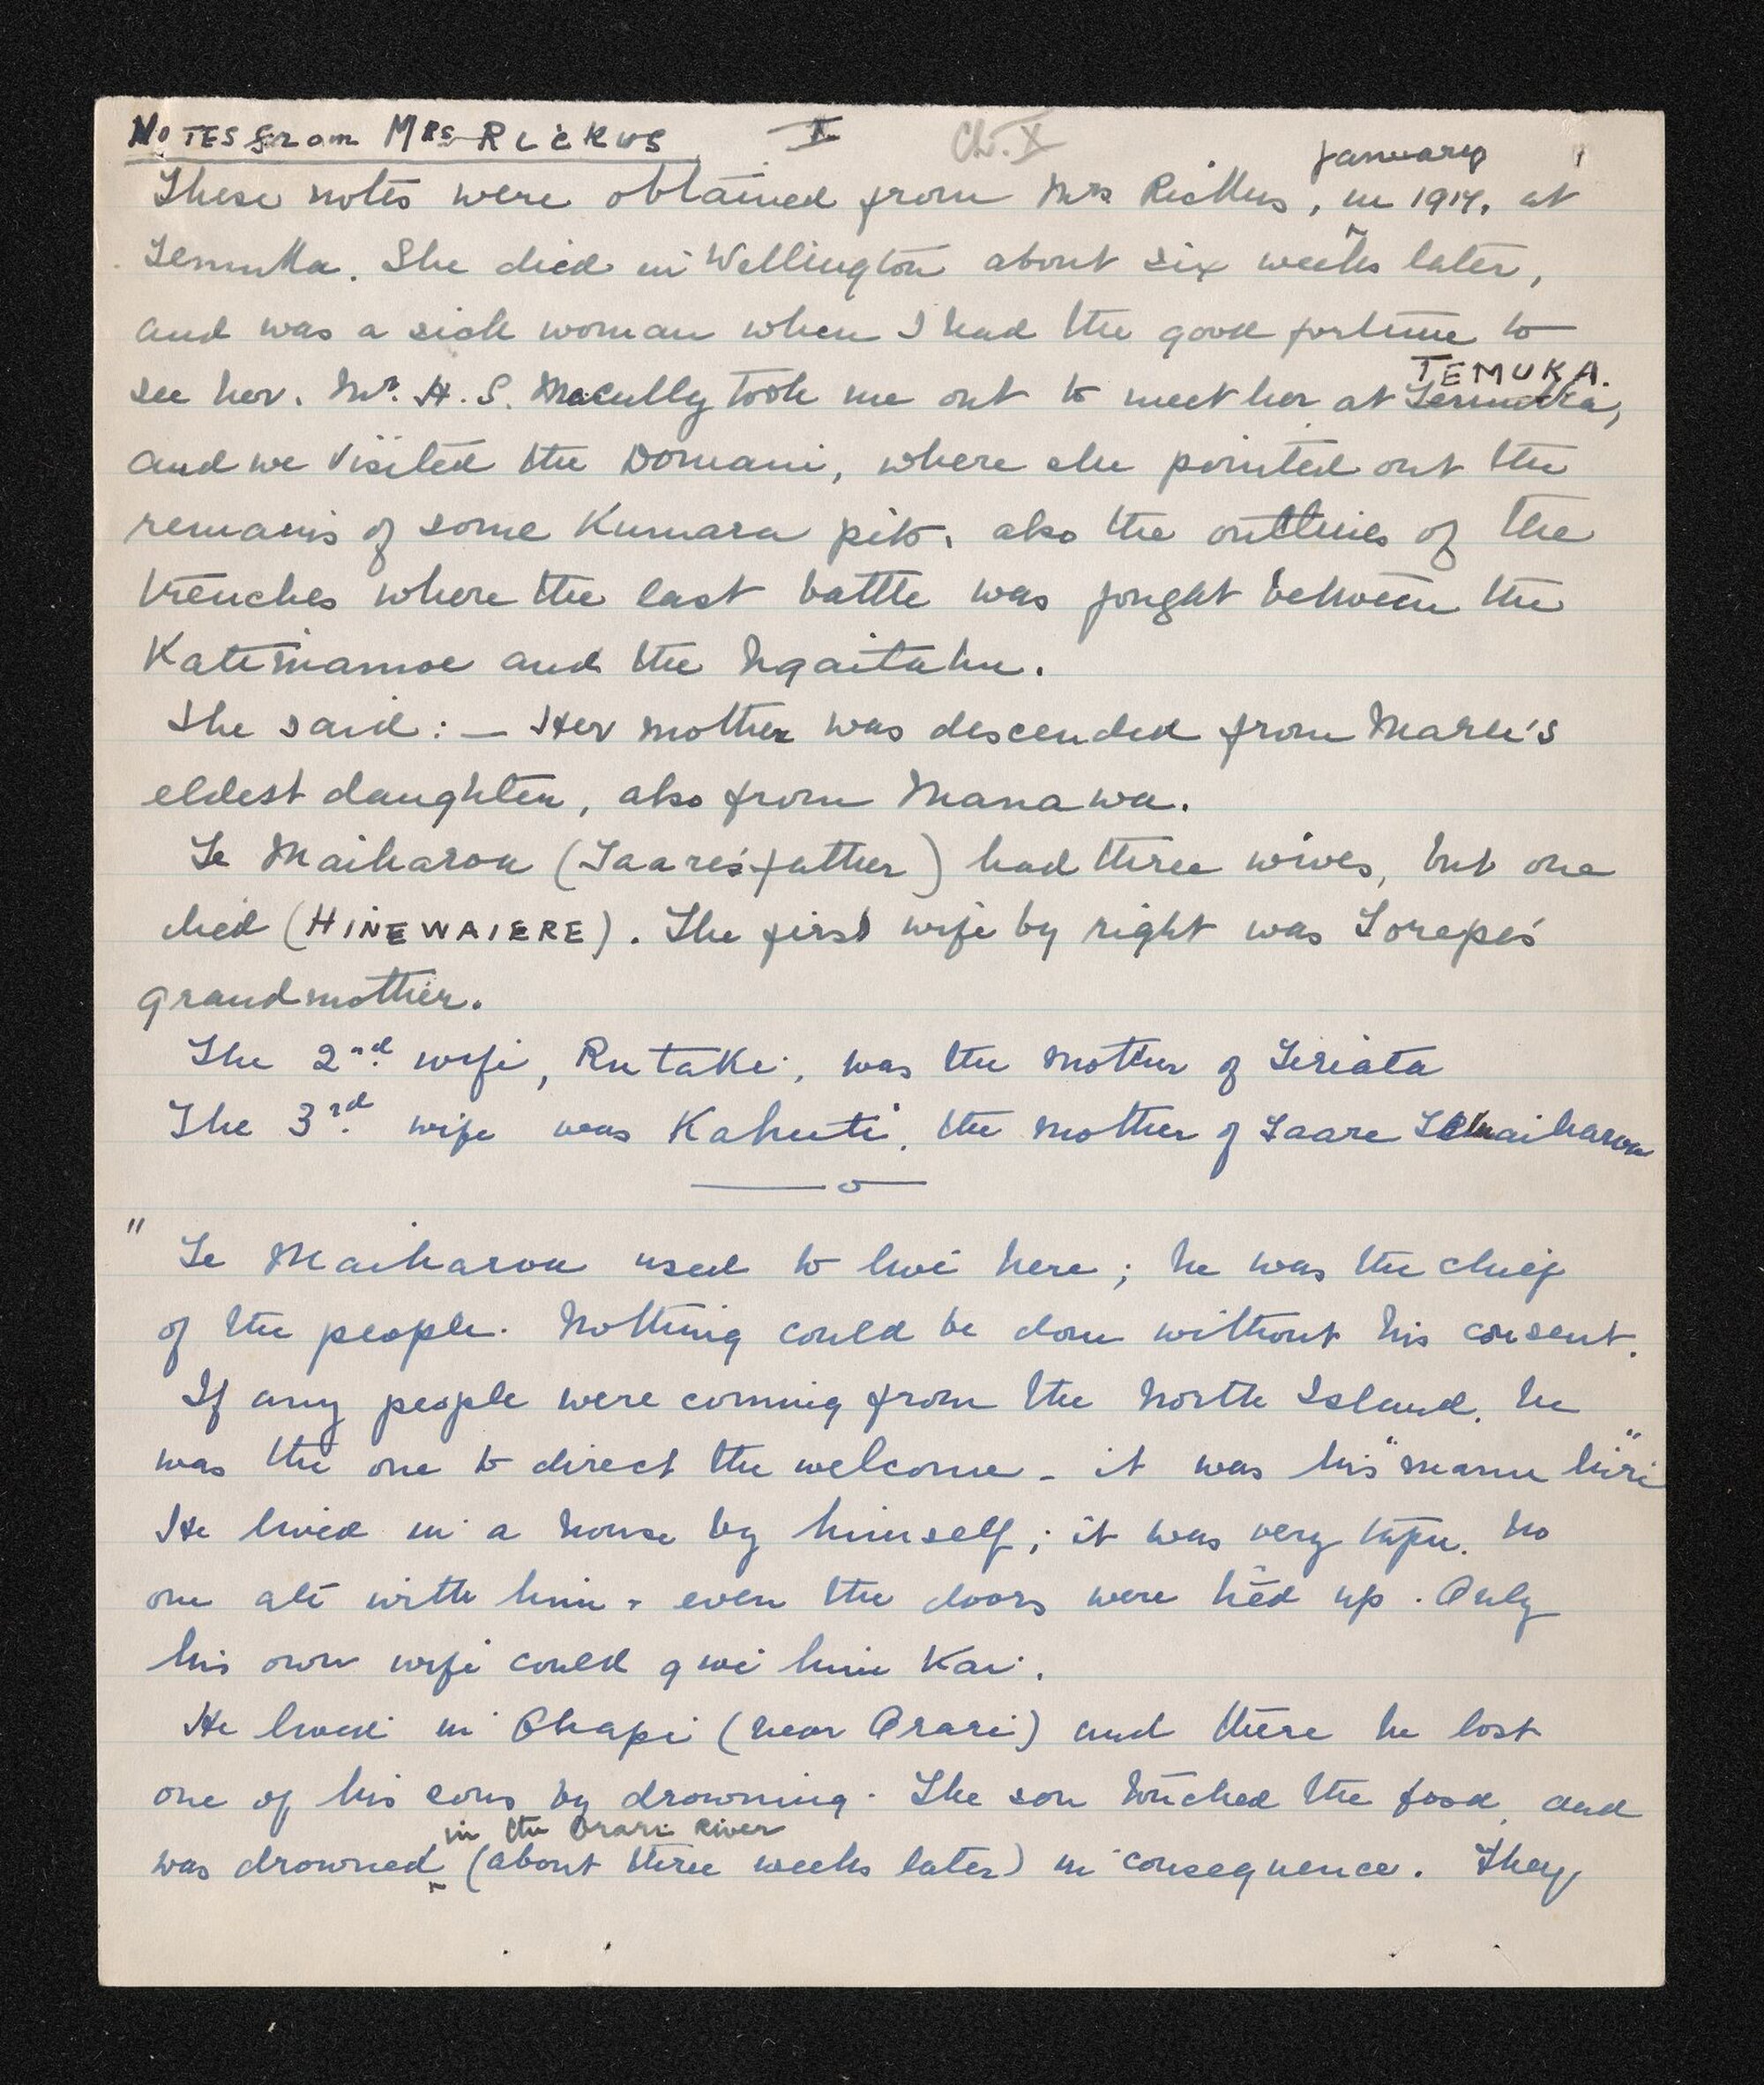 NOTES from MRS RICKUS X Ch. X
January 1
These notes were obtained from Mrs Rickus, in at
Temuka. She died in Wellington about six weeks later,
and was a sick woman when I had the good fortune to
TEMUKA.
see her. Mr. H. S. McCully took me out to meet her at Temuka,
and we visited the Domain, where she pointed out the
remains of some Kumara pits, also the outlines of the
trenches where the last battle was fought between the
Katimamoe and the Ngaitahu.
She said: — Her mother was descended from Maru's
eldest daughter, also from Manawa.
Te Maiharoa (Taare's father) had three wives, but one
died (HINEWAIERE). The first wife by right was Torepe's
grandmother.
The 2nd. wife, Rutaki, was the mother of Teriata
The 3rd. wife was Kahuti, the mother of Taare Temaiharoa
—o—
" Te Maiharoa used to live here; he was the chief
of the people. Nothing could be done without his consent.
If any people were coming from the North Island, he
was the one to direct the welcome - it was his "manu hiri"
He lived in a house by himself; it was very tapu. No
one ate with him - even the doors were tied up. Only
his own wife could give him Kai.
He lived in Ohapi (near Orari) and there he lost
one of his sons by drowning. The son touched the food, and
in the Orari River
was drowned (about three weeks later) in consequence. They